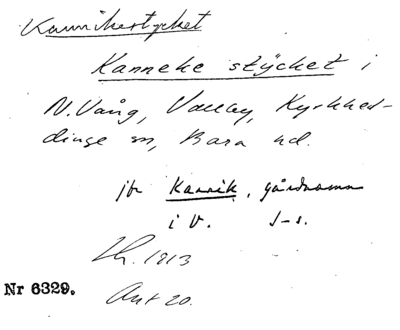 Kannikestycket
Kanneke stÿcket i
N. Vång, Vallby, Kyrkhed-
dinge sn, Bara hd.
jfr Kannik, gårdnamn
i V. s-s.
Lh. 1813
Akt 20.
Nr 6329.